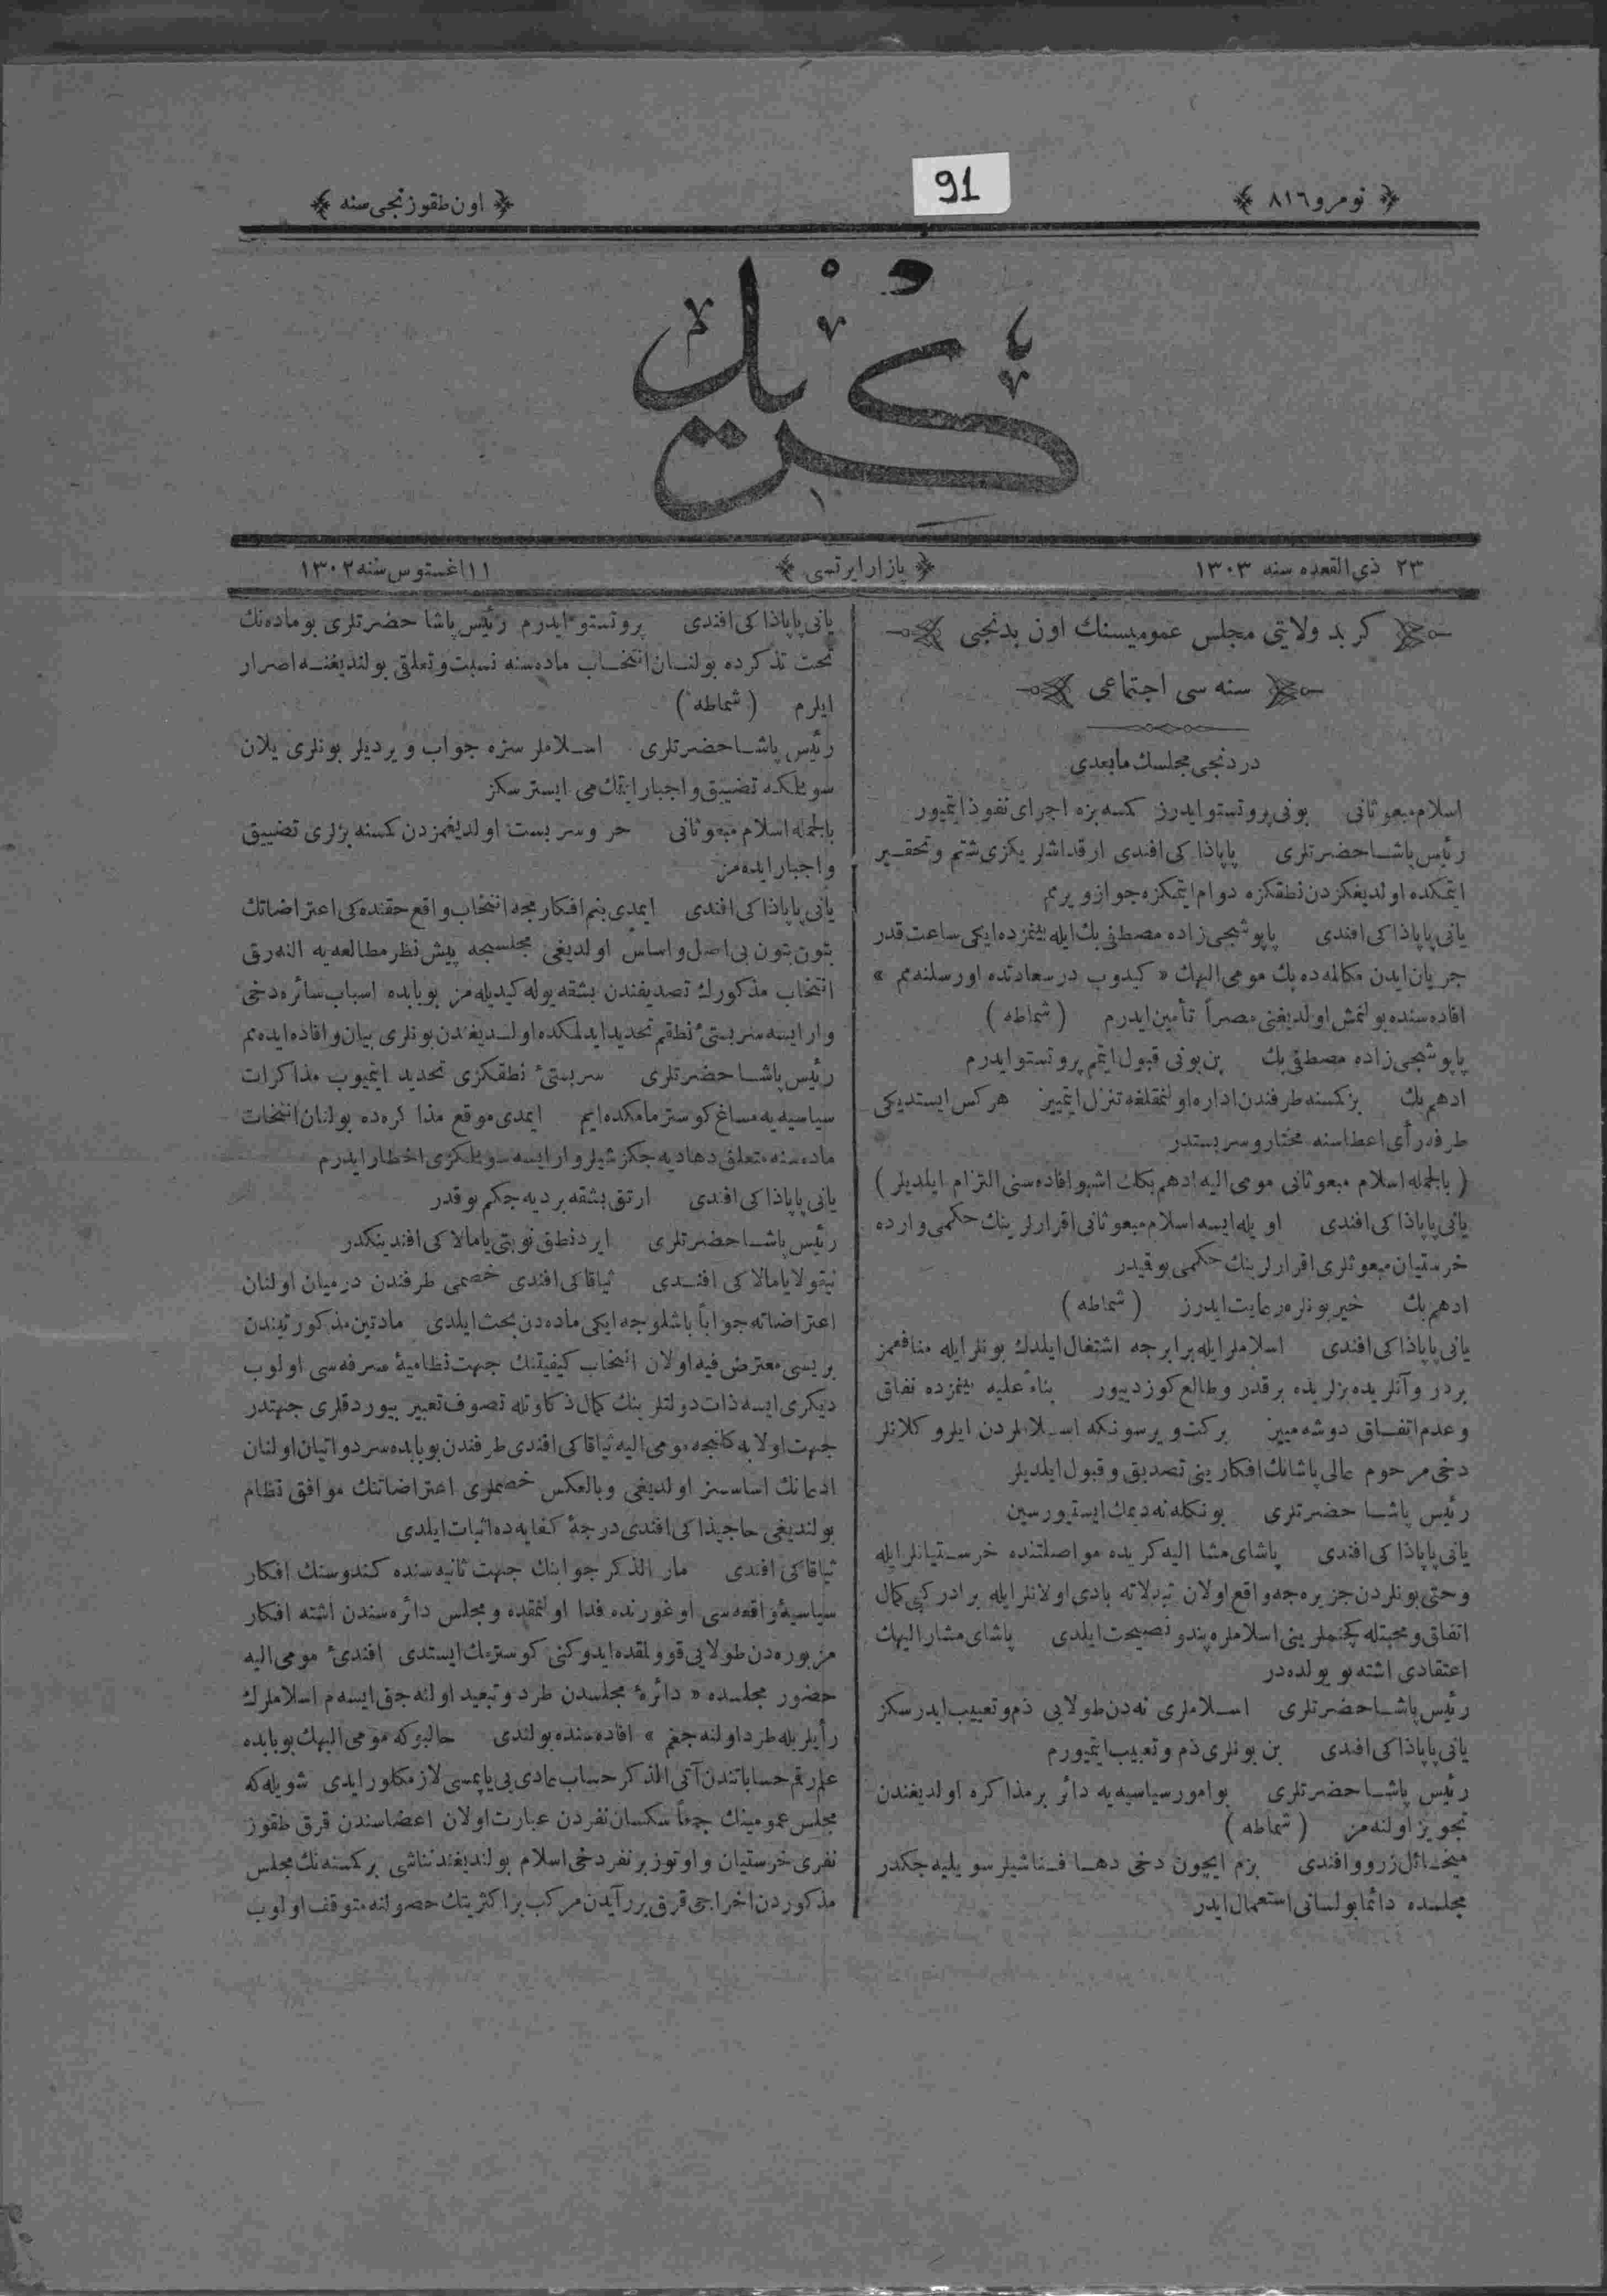 نومرو ٨١٦
91
اون طقوزنجی سنه
كريد
٢٣ ذی القعده سنه ١٣٠٣
بازار ایرتسی
١١ اغستوس سنه ١٣٠٢
كريد ولايتی مجلس عموميسنك اون يدنجی
سنه سی اجتماعی
دردنجی مجلسك مابعدی
اسلام مبعوثانی بونی پروتستو ايدرز كمسه بزه اجرای نفوذ ايتميور
رئيس پاشا حضرتلری پاپاذاكی افندی ارقداشلريكزی شتم و تحقير
ايتمكده اولديغكزدن نطقكزه دوام ايتمكزه جواز ويرمم
يانی پاپاذاكی افندی پاپوشجی زاده مصطفی بك ايله بينمزده ايكی ساعت قدر
جريان ايدن مكالمه ده بك مومی اليهك « كيدوب درسعادتده اورسلنه مم »
افاده سنده بولنمش اولديغنی مصراً تأمين ايدرم ( شماطه )
پاپوشجی زاده مصطفی بك بن بونی قبول ايتمم پروتستو ايدرم
ادهم بك بز كمسنه طرفندن اداره اولنمقلغه تنزل ايتمييز هركس ايستديكی
طرفه رأی اعطاسنه مختار و سربستدر
( بالجمله اسلام مبعوثانی مومی اليه ادهم بكك اشبو افاده سنی التزام ايلديلر )
يانی پاپاذاكی افندی اويله ايسه اسلام مبعوثانی اقرارلرينك حكمی وارده
خرستيان مبعوثلری اقرارلرينك حكمی يوقيدر
ادهم بك خير بونلره رعايت ايدرز ( شماطه )
يانی پاپاذاكی افندی اسلاملر ايله برابرجه اشتغال ايلدك بونلر ايله منافعمز
بردر و آنلريده بزلريده برقدر وطالع كوزدييور بناءً عليه بينمزده نفاق
و عدم اتفاق دوشه مييز بركت ويرسونكه اسلاملردن ايلرو كلانلر
دخی مرحوم عالی پاشانك افكارينی تصديق و قبول ايلديلر
رئيس پاشا حضرتلری بونكله نه ديمك ايستيورسين
يانی پاپاذاكی افندی پاشای مشار اليه كريده مواصلتنده خرستيانلر ايله
و حتی بونلردن جزيره جه واقع اولان تبدلاته بادی اولانلر ايله برادر كبی كمال
اتفاق و محبتله كچنملرينی اسلاملره پند و نصيحت ايلدی پاشای مشار اليهك
اعتقادی اشته بو يولده در
رئيس پاشا حضرتلری اسلاملری نه دن طولايی ذم و تعييب ايدرسكز
يانی پاپاذاكی افندی بن بونلری ذم و تعييب ايتميورم
رئيس پاشا حضرتلری بو امور سياسيه يه دائر برمذاكره اولديغندن
تجويز اولنه مز ( شماطه )
ميخائل زروو افندی بزم ايچون دخی دها فنا شيلر سويليه جكدر
مجلسده دائما بو لسانی استعمال ايدر
يانی پاپاذاكی افندی پروتستو ايدرم رئيس پاشا حضرتلری بو ماده نك
تحت تذكرده بولنان انتخاب ماده سنه نسبت و تعلقی بولنديغنه اصرار
ايلرم ( شماطه )
رئيس پاشا حضرتلری اسلاملر سزه جواب ويرديلر بونلری يلان
سويلمكه تضييق و اجبار ايتمك می ايسترسكز
بالجمله اسلام مبعوثانی حر و سربست اولديغمزدن كمسنه بزلری تضييق
و اجبار ايده مز
يانی پاپاذاكی افندی ايمدی بنم افكارمجه انتخاب واقع حقنده كی اعتراضاتك
بتون بتون بی اصل و اساس اولديغی مجلسجه پيش نظر مطالعه يه النه رق
انتخاب مذكورك تصديقندن بشقه يوله كيديله مز بوبابده اسباب سائره دخی
وار ايسه سربستیٔ نطقم تحديد ايدلمكده اولديغندن بونلری بيان و افاده ايده مم
رئيس پاشا حضرتلری سربستیٔ نطقكزی تحديد ايتميوب مذاكرات
سياسيه يه مساغ كوسترمامكده ايم ايمدی موقع مذاكره ده بولنان انتخابات
ماده سنه متعلق دها ديه جكز شيلر وار ايسه سويلمكزی اخطار ايدرم
يانی پاپاذاكی افندی ارتق بشقه بر ديه جكم يوقدر
رئيس پاشا حضرتلری ايراد نطق نوبتی يامالاكی افندينكدر
نيقولا يامالاكی افندی ثياقاكی افندی خصمی طرفندن درميان اولنان
اعتراضاته جواباً باشلوجه ايكی ماده دن بحث ايلدی مادتين مذكورتيندن
بريسی معترض فيه اولان انتخاب كيفيتنك جهت نظاميهٔ صرفه سی اولوب
ديكری ايسه ذات دولتلرينك كمال ذكاوتله تصوف تعبير بيوردقلری جهتدر
جهت اولايه كلنجه مومی اليه ثياقاكی افندی طرفندن بوبابده سرد و اتيان اولنان
ادعانك اساسسز اولديغی و بالعكس خصملری اعتراضاتنك موافق نظام
بولنديغی حاجيذاكی افندی درجهٔ كفايه ده اثبات ايلدی
ثياقاكی افندی مار الذكر جوابنك جهت ثانيه سنده كندوسنك افكار
سياسيهٔ واقعه سی اوغورنده فدا اولنمقده و مجلس دائره سندن اشته افكار
مزبوره دن طولايی قوولمقده ايدوكنی كوسترمك ايستدی افندیٔ مومی اليه
حضور مجلسده « دائرهٔ مجلسدن طرد و تبعيد اولنه جق ايسه م اسلاملرك
رأيلريله طرد اولنه جغم » افاده سنده بولندی حالبوكه مومی اليهك بوبابده
علم رقم حساباتندن آتی الذكر حساب عادی يی ياپمسی لازمكلور ايدی شويله كه
مجلس عمومينك جمعاً سكسان نفردن عبارت اولان اعضاسندن قرق طقوز
نفری خرستيان و اوتوز بر نفر دخی اسلام بولنديغندن ناشی بر كمسنه نك مجلس
مذكوردن اخراجی قرق بر رأيدن مركب بر اكثريتك حصولنه متوقف اولوب